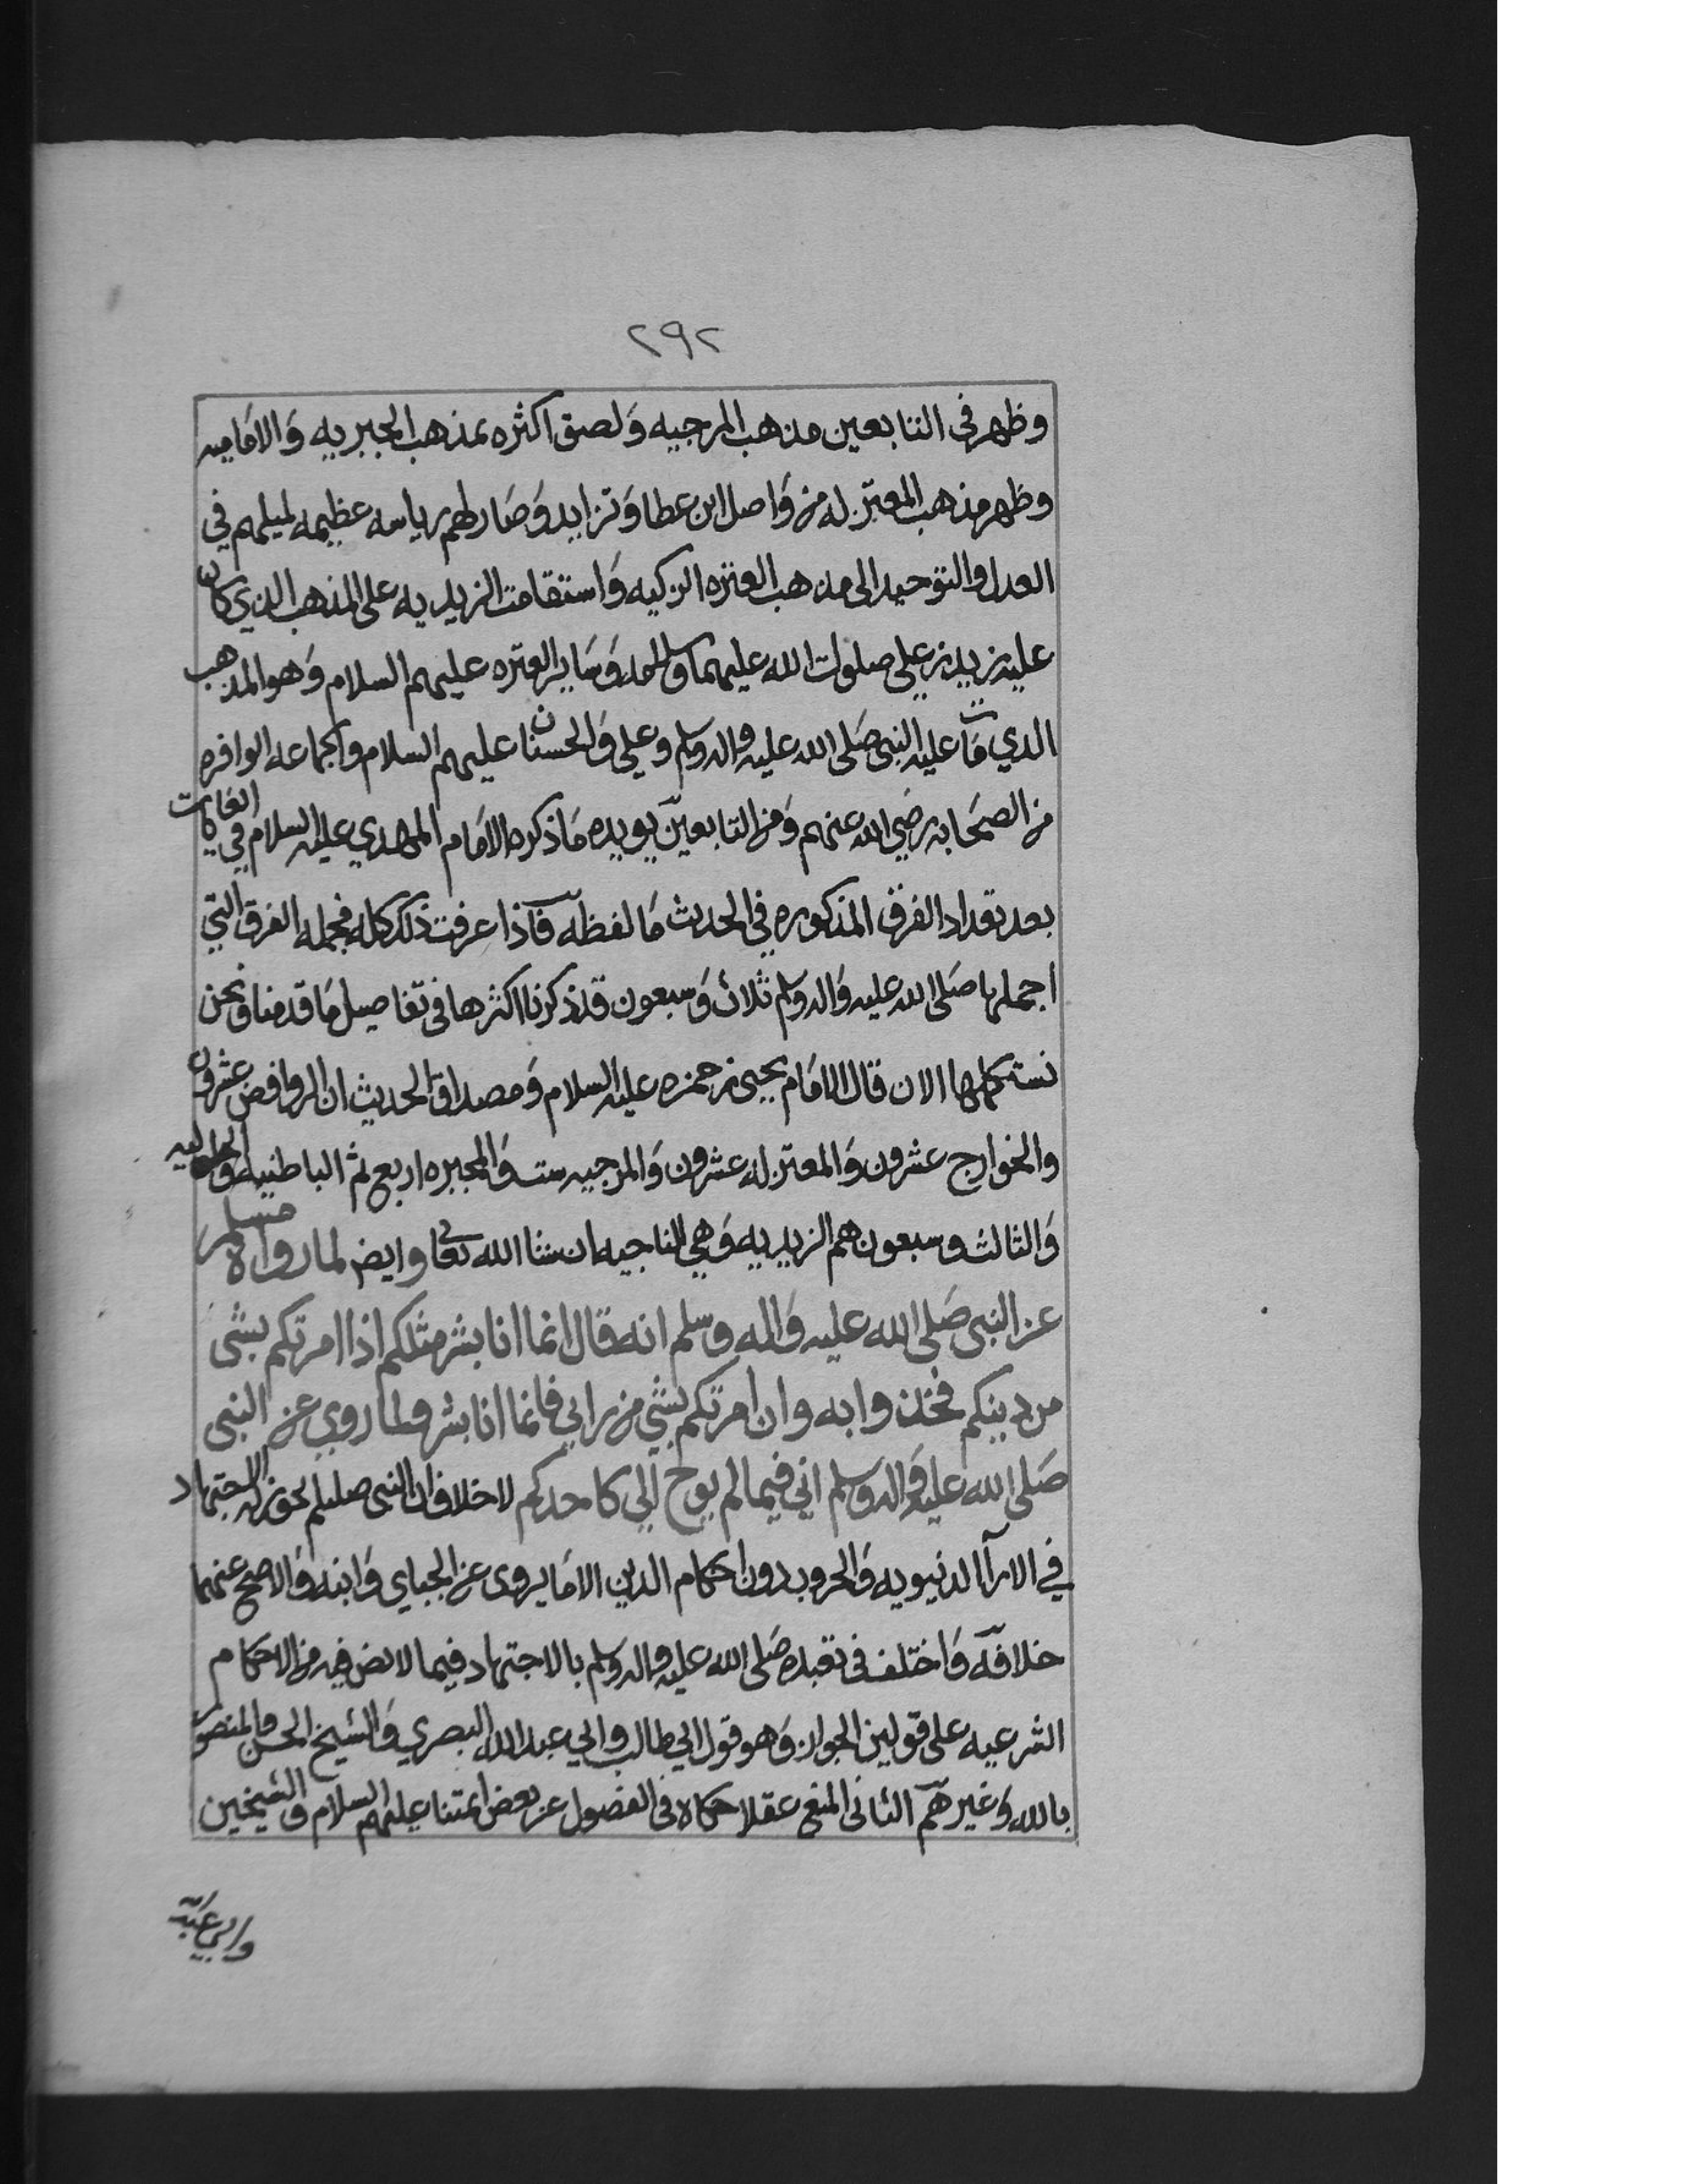 ٢٩٢
وظهر في التابعين مذهب المرجيه ولصق اكثره بمذهب الجبريه والاماميه
وظهر مذهب المعتزله من واصل ابن عطا وتزايد وصار لهم رياسه عظيمه لميلهم في
العدل والتوحيد الى مذهب العتره الزكيه واستقامت الزيديه على المذهب الذي كان
عليه زيد بن علي صلوات الله عليهما وساير العتره عليهم السلام وهو المذهب
الذي مات عليه النبي صلى الله عليه واله وسلم وعلي والحسنان عليهم السلام والجماعه الوافره
من الصحابه رضي الله عنهم ومن التابعين يويده ما ذكره الامام المهدي عليه السلام في الغايات
بعد تعداد الفرق المذكوره في الحديث ما لفظه فاذا عرفت ذلك كله فجمله الفرق التي
اجملها صلى الله عليه واله وسلم ثلاث وسبعون قد ذكرنا اكثرها في تفاصيل ما قدمنا ونحن
نستكملها الان قال الامام يحيى بن حمزه عليه السلام ومصداق الحديث ان الروافض عشرون
والخوارج عشرون والمعتزله عشرون والمرجيه ست والمجبره اربع ثم الباطنيه والحلوليه
والثالث وسبعون هم الزيديه وهي الناجيه ان شا الله تعالى وايض لما رواه مسلم
عن النبي صلى الله عليه واله وسلم انه قال انما انا بشر مثلكم اذا امرتكم بشي
من دينكم فخذوا به وان امرتكم بشي من رايي فانما انا بشر ولما روي عن النبي
صلى الله عليه واله وسلم اني فيما لم يوح الي كاحدكم لا خلاف ان النبي صللم يجوز له الاجتهاد
في الارآ الدنيويه والحروب دون احكام الدين الا ما يروى عن الجباي وابنه والاصح عنهما
خلافه واختلف في تعبده صلى الله عليه واله وسلم بالاجتهاد فيما لا نص فيه من الاحكام
الشرعيه على قولين الجواز وهو قول ابي طالب وابي عبد الله البصري والشيخ الحسن والمنصور
بالله وغيرهم الثاني المنع عقلا حكاه في الفصول عن بعض ايمتنا عليهم السلام والشيخين